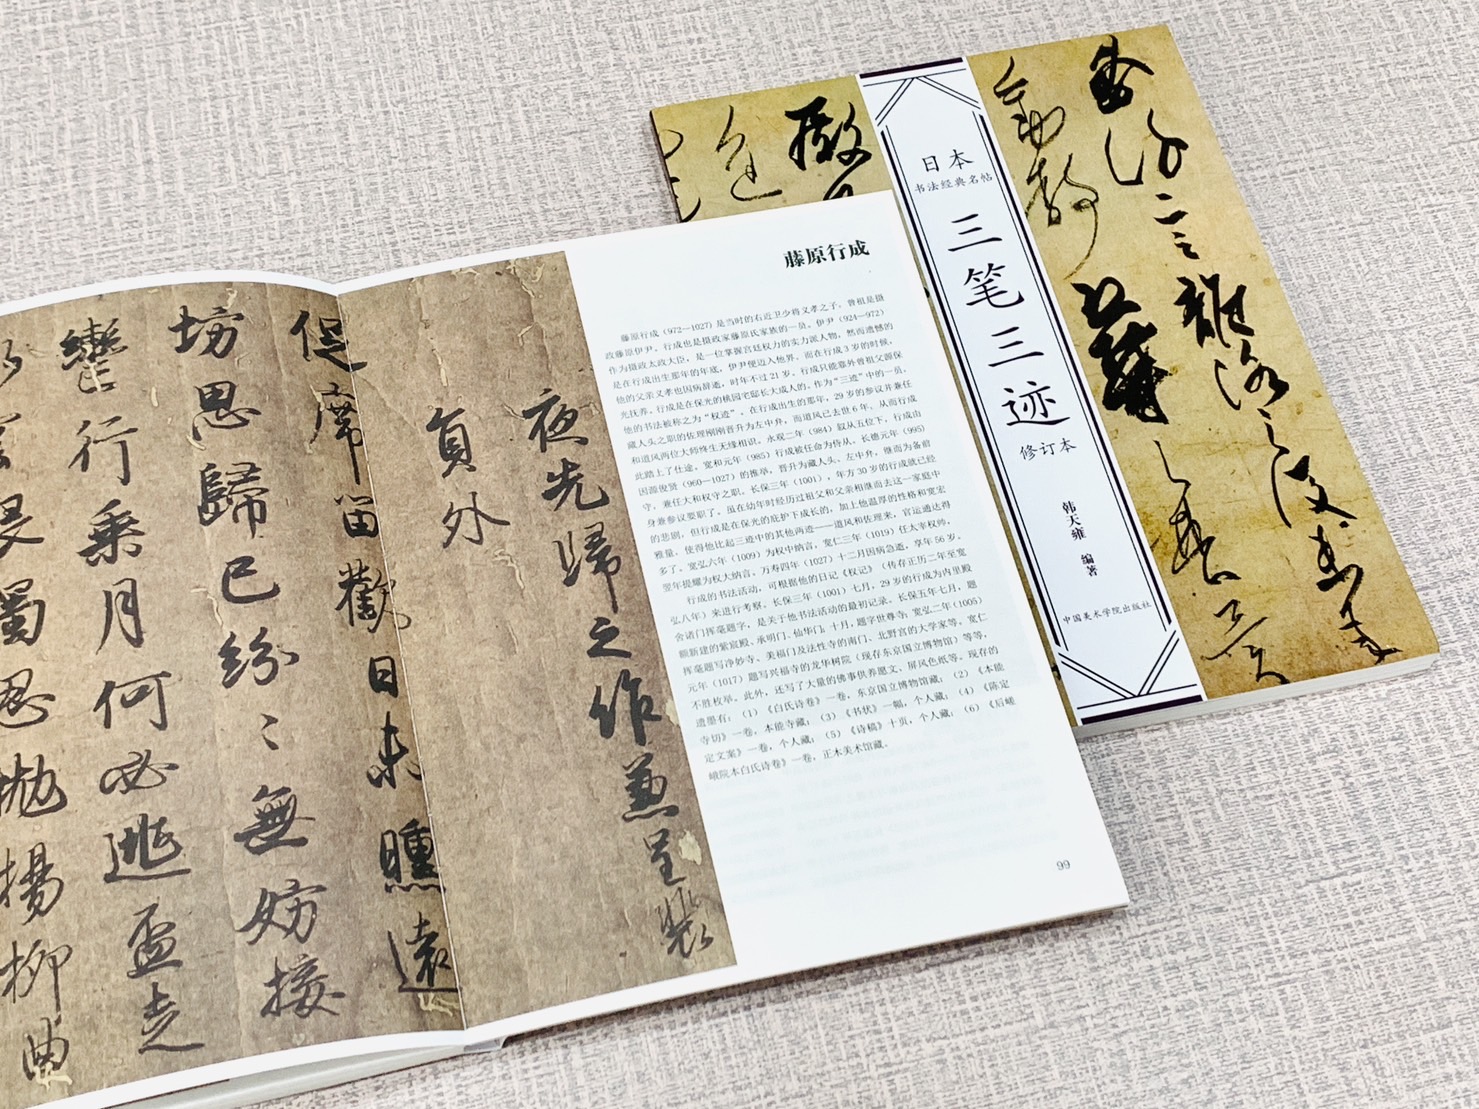 日本
书法经典名帖
三笔三迹
修订本
韩天雍 编著
中国美术学院出版社
藤原行成
藤原行成（972—1027）是当时的右近卫少将义孝之子。曾祖是摄
政藤原伊尹。行成也是摄政家藤原氏家族的一员。伊尹（924—972）
作为摄政太政大臣，是一位掌握宫廷权力的实力派人物，然而遗憾的
是在行成出生那年的年底，伊尹便迈入他界。而在行成3岁的时候，
他的父亲义孝也因病辞逝，时年不过21岁。行成只能靠外曾祖父源保
光抚养。行成是在保光的桃园宅邸长大成人的。作为“三迹”中的一员，
他的书法被称之为“权迹”。在行成出生的那年，29岁的参议并兼任
藏人头之职的佐理刚刚晋升为左中弁，而道风已去世6年，从而行成
和道风两位大师终生无缘相识。永观二年（984）叙从五位下，行成由
此踏上了仕途。宽和元年（985）行成被任命为侍从。长德元年（995）
因源俊贤（960—1027）的推举，晋升为藏人头、左中弁，继而为备前
守，兼任大和权守之职。长保三年（1001），年方30岁的行成就已经
身兼参议要职了。虽在幼年时经历过祖父和父亲相继而去这一家庭中
的悲剧，但行成是在保光的庇护下成长的，加上他温厚的性格和宽宏
雅量，使得他比起三迹中的其他两迹——道风和佐理来，官运通达得
多了。宽弘六年（1009）为权中纳言，宽仁三年（1019）任太宰权帅，
翌年提耀为权大纳言。万寿四年（1027）十二月因病急逝，享年56岁。
行成的书法活动，可根据他的日记《权记》（传存正历二年至宽
弘八年）来进行考察。长保三年（1001）七月，29岁的行成为内里殿
舍诸门挥毫题字，是关于他书法活动的最初记录。长保五年七月，题
额新建的紫宸殿、承明门、仙华门；十月，题字世尊寺；宽弘二年（1005）
挥毫题写净妙寺、美福门及法性寺的南门、北野宫的大学家等。宽仁
元年（1017）题写兴福寺的龙华树院（现存东京国立博物馆）等等，
不胜枚举。此外，还写了大量的佛事供养愿文、屏风色纸等。现存的
遗墨有：（1）《白氏诗卷》一卷，东京国立博物馆藏；（2）《本能
寺切》一卷，本能寺藏；（3）《书状》一幅，个人藏；（4）《陈定
定文案》一卷，个人藏；（5）《诗稿》十页，个人藏；（6）《后嵯
峨院本白氏诗卷》一卷，正木美术馆藏。
99
夜先歸之作兼呈裴
員外
促席留歡日未曛遠
坊思歸已紛〻無妨接
轡行乗月何必逃盃走